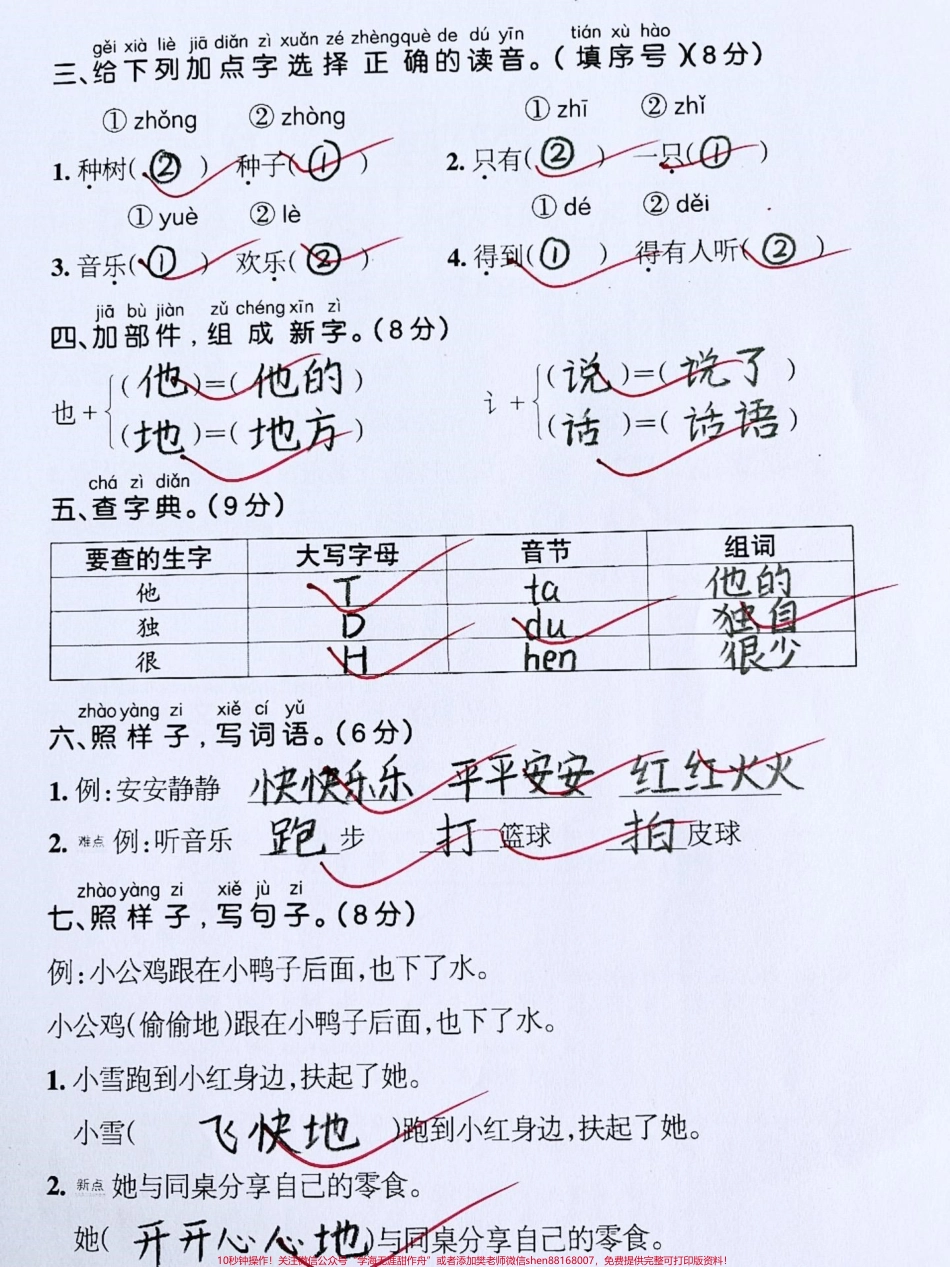 gěi xià liè jiā diǎn zì xuǎn zé zhèng què de dú yīn tián xù hào
三、给下列加点字选择正确的读音。(填序号)(8分)
① zhǒng ② zhòng ① zhī ② zhǐ
1. 种树( ② ) 种子( ① ) 2. 只有( ② ) 一只( ① )
① yuè ② lè ① dé ② děi
3. 音乐( ① ) 欢乐( ② ) 4. 得到( ① ) 得有人听( ② )
jiā bù jiàn zǔ chéng xīn zì
四、加部件,组成新字。(8分)
( 他 )=( 他的 ) ( 说 )=( 说了 )
也+ 讠+
( 地 )=( 地方 ) ( 话 )=( 话语 )
chá zì diǎn
五、查字典。(9分)
要查的生字 大写字母 音节 组词
他 T ta 他的
独 D du 独自
很 H hen 很少
zhào yàng zi xiě cí yǔ
六、照样子,写词语。(6分)
1. 例:安安静静 快快乐乐 平平安安 红红火火
2. 难点 例:听音乐 跑步 打篮球 拍皮球
zhào yàng zi xiě jù zi
七、照样子,写句子。(8分)
例:小公鸡跟在小鸭子后面,也下了水。
小公鸡(偷偷地)跟在小鸭子后面,也下了水。
1. 小雪跑到小红身边,扶起了她。
小雪( 飞快地 )跑到小红身边,扶起了她。
2. 新点 她与同桌分享自己的零食。
她( 开开心心地)与同桌分享自己的零食。
10秒钟操作!关注微信公众号“学海无涯甜作舟”或者添加樊老师微信shen88168007,免费提供完整可打印版资料!